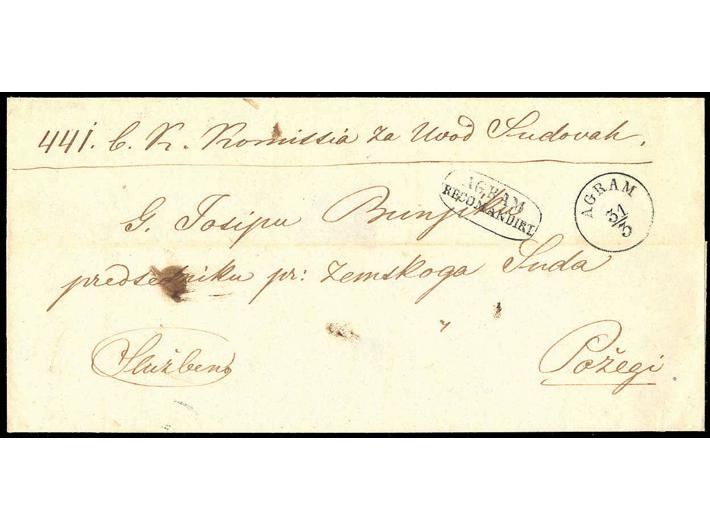 441. C. K. Komissia za Uvod Sudovah.
AGRAM
RECOMANDIRT
AGRAM
31/3
G. Josipu
predsedniku pr: Zemskoga Suda
Službeno
Požegi